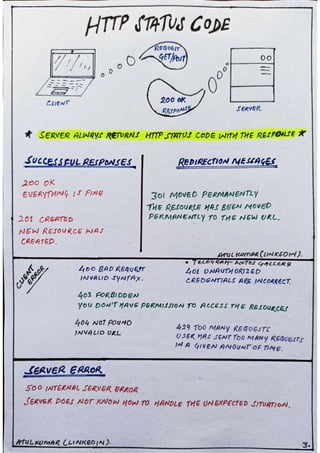 HTTP STATUS CODE
REQUEST
GET/POST
200 OK
RESPONSE
CLIENT
SERVER
* SERVER ALWAYS RETURNS HTTP STATUS CODE WITH THE RESPONSE *
SUCCESSFUL RESPONSES
200 OK
EVERYTHING IS FINE
201 CREATED
NEW RESOURCE WAS
CREATED.
REDIRECTION MESSAGES
301 MOVED PERMANENTLY
THE RESOURCE HAS BEEN MOVED
PERMANENTLY TO THE NEW URL.
ATULKUMAR (LINKEDIN).
• TELEGRAM-NOTES GALLERY
CLIENT
ERROR
400 BAD REQUEST
INVALID SYNTAX.
401 UNAUTHORIZED
CREDENTIALS ARE INCORRECT.
403 FORBIDDEN
YOU DON'T HAVE PERMISSION TO ACCESS THE RESOURCES
404 NOT FOUND
INVALID URL
429 TOO MANY REQUESTS
USER HAS SENT TOO MANY REQUESTS
IN A GIVEN AMOUNT OF TIME.
SERVER ERROR
500 INTERNAL SERVER ERROR
SERVER DOES NOT KNOW HOW TO HANDLE THE UNEXPECTED SITUATION.
ATULKUMAR (LINKEDIN).
3.